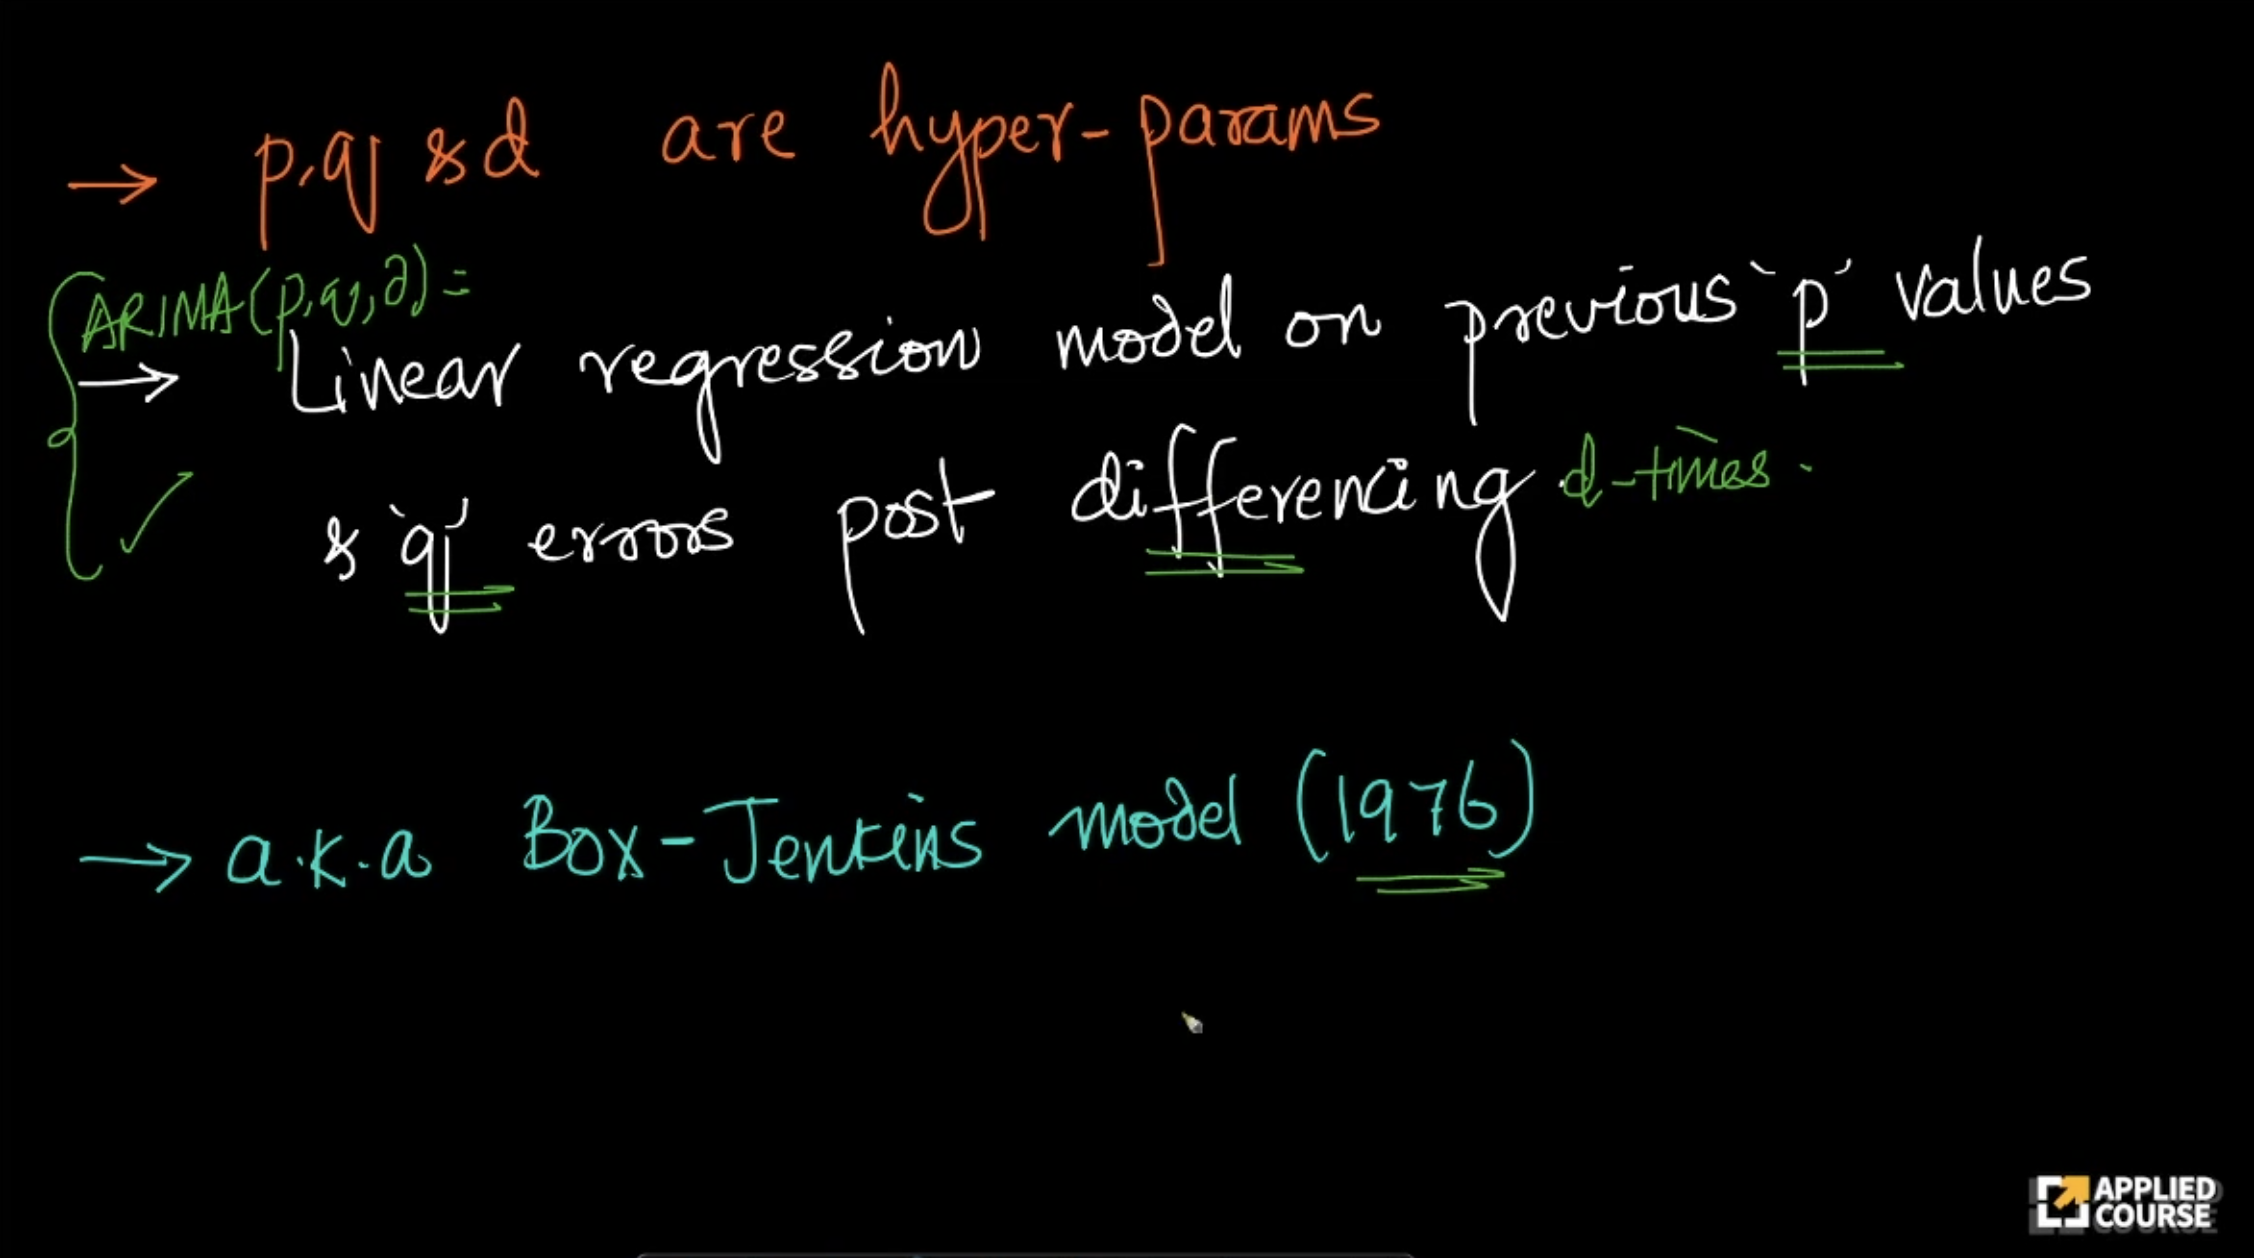 → p,q & d are hyper-params
ARIMA(p,q,d) =
→ Linear regression model on previous 'p' values
& 'q' errors post differencing d-times.
→ a.k.a Box-Jenkins model (1976)
APPLIED
COURSE